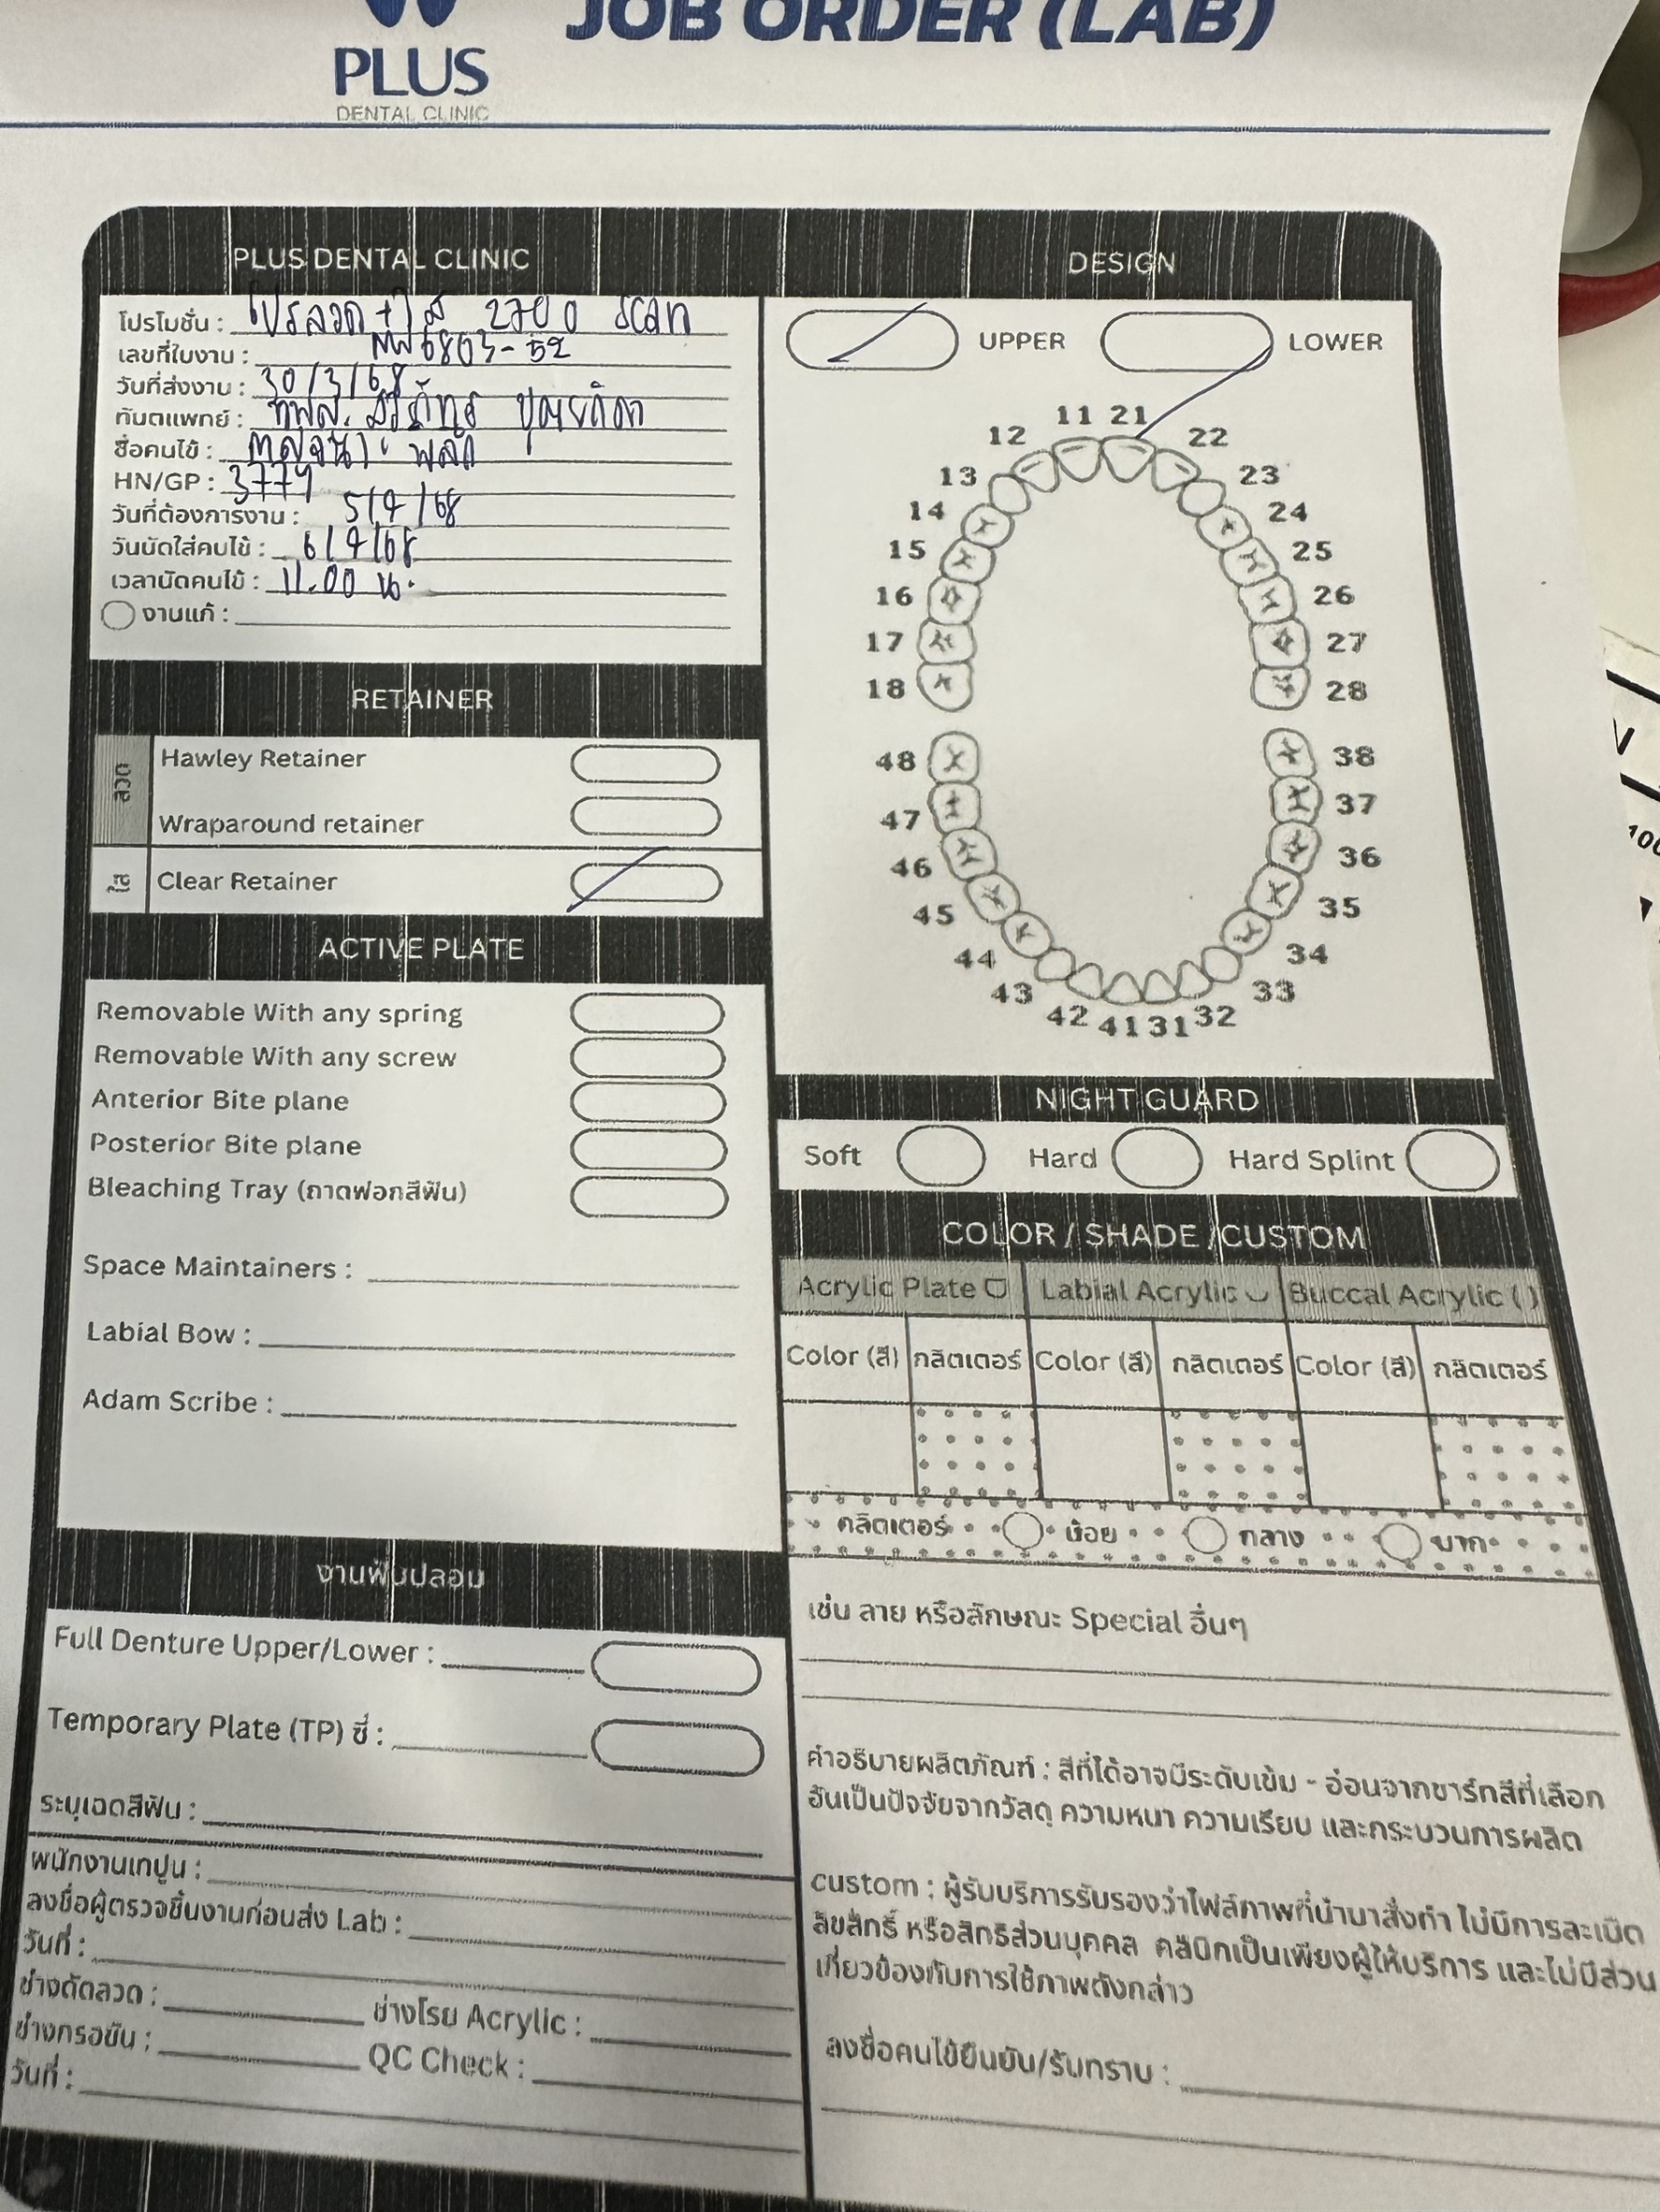 JOB ORDER (LAB)
PLUS
DENTAL CLINIC
PLUS DENTAL CLINIC
โปรโมชั่น : โปรลวด + ใส 2700 scan
เลขที่ใบงาน : 6803-52
วันที่ส่งงาน : 30/3/68
ทันตแพทย์ :
ชื่อคนไข้ :
HN/GP :
วันที่ต้องการงาน : 5/4/68
วันนัดใส่คนไข้ : 6/4/68
เวลานัดคนไข้ : 11.00 น.
งานแก้ :
RETAINER
ลวด
Hawley Retainer
Wraparound retainer
ใส
Clear Retainer
ACTIVE PLATE
Removable With any spring
Removable With any screw
Anterior Bite plane
Posterior Bite plane
Bleaching Tray (ถาดฟอกสีฟัน)
Space Maintainers :
Labial Bow :
Adam Scribe :
งานฟันปลอม
Full Denture Upper/Lower :
Temporary Plate (TP) ซี่ :
ระบุเฉดสีฟัน :
พนักงานเทปูน :
ลงชื่อผู้ตรวจชิ้นงานก่อนส่ง Lab :
วันที่ :
ช่างดัดลวด : ช่างโรย Acrylic :
ช่างกรอขัน : QC Check :
วันที่ :
DESIGN
UPPER LOWER
11 21
12 22
13 23
14 24
15 25
16 26
17 27
18 28
48 38
47 37
46 36
45 35
44 34
43 33
42 41 31 32
NIGHT GUARD
Soft Hard Hard Splint
COLOR / SHADE / CUSTOM
Acrylic Plate Labial Acrylic Buccal Acrylic ( )
Color (สี) กลิตเตอร์ Color (สี) กลิตเตอร์ Color (สี) กลิตเตอร์
กลิตเตอร์ น้อย กลาง มาก
เช่น ลาย หรือลักษณะ Special อื่นๆ
คำอธิบายผลิตภัณฑ์ : สีที่ได้อาจมีระดับเข้ม - อ่อนจากชาร์ทสีที่เลือก
อันเป็นปัจจัยจากวัสดุ ความหนา ความเรียบ และกระบวนการผลิต
custom : ผู้รับบริการรับรองว่าไฟล์ภาพที่นำมาสั่งทำ ไม่มีการละเมิด
ลิขสิทธิ์ หรือสิทธิส่วนบุคคล คลินิกเป็นเพียงผู้ให้บริการ และไม่มีส่วน
เกี่ยวข้องกับการใช้ภาพดังกล่าว
ลงชื่อคนไข้ยืนยัน/รับทราบ :